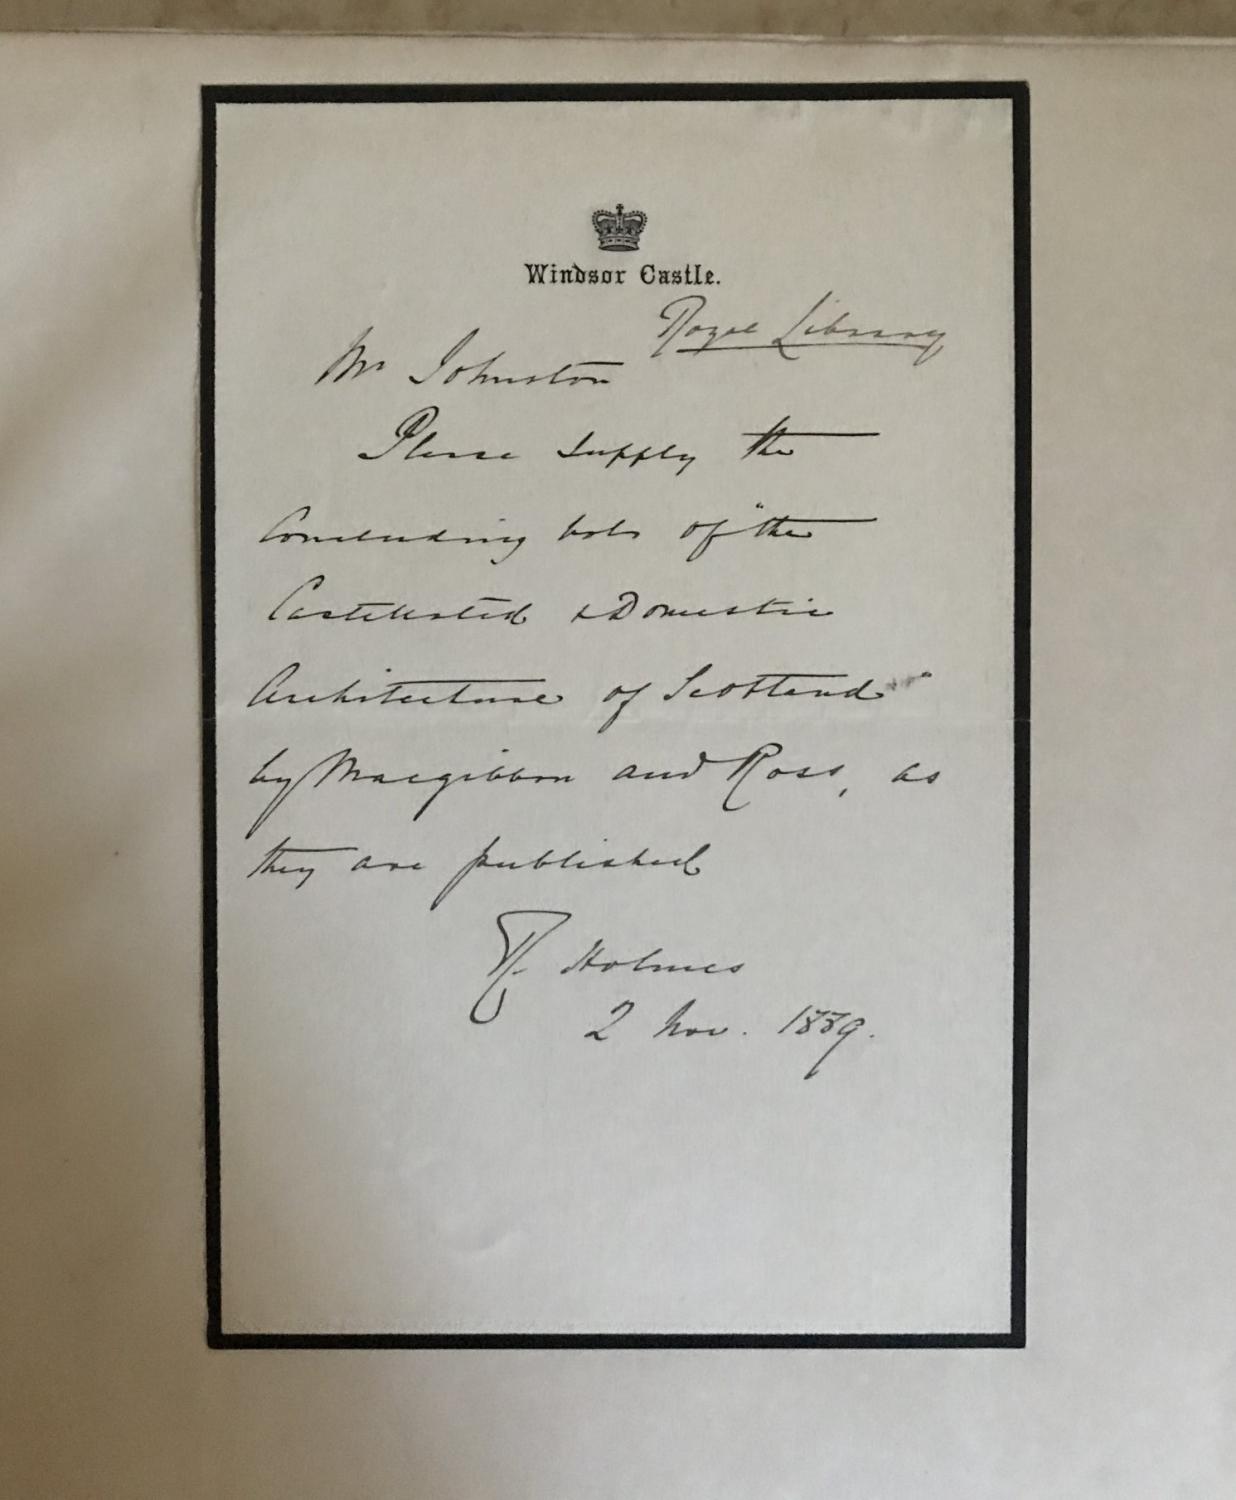 Windsor Castle.
Royal Library
Mr Johnston
Please supply the
Concluding vols of "the
Castellated & Domestic
Architecture of Scotland"
by Macgibbon and Ross, as
they are published
R. Holmes
2 Nov. 1889.